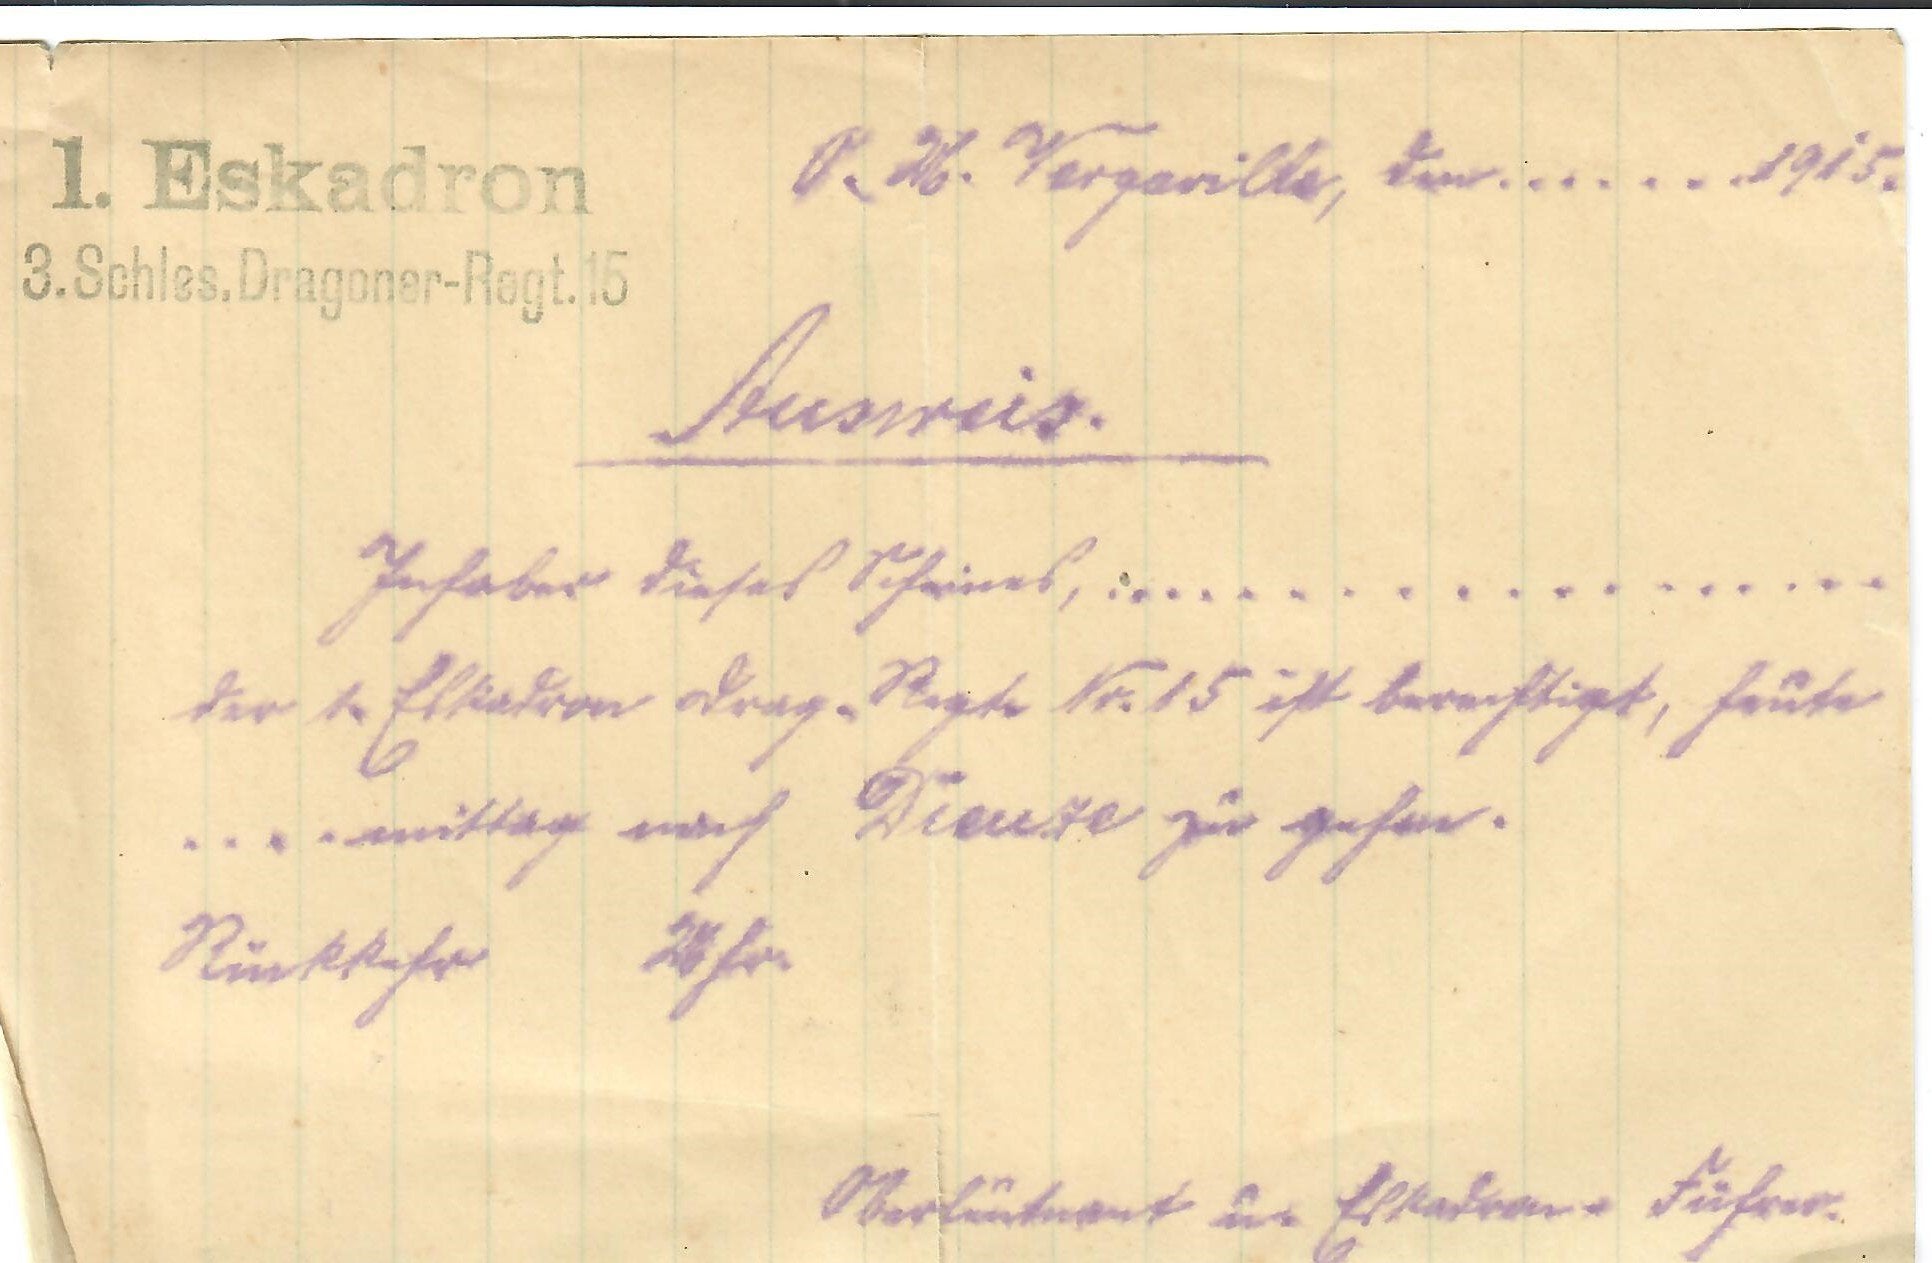 1. Eskadron
3. Schles. Dragoner-Regt. 15
O. U. Vergaville, den . . . . . . . 1915.
Ausweis.
Inhaber dieses Scheines, . . . . . . . . . . . . . . . . . .
der 1. Eskadron Drag.-Regts Nr. 15 ist berechtigt, heute
. . . . mittag nach Dieuze zu gehen.
Rückkehr Uhr.
Oberleutnant u. Eskadron-Führer.